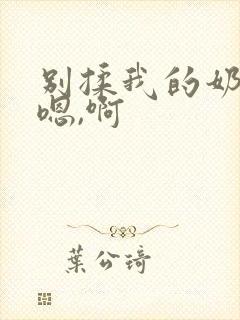 别揉我的奶
嗯,啊
葉公琦